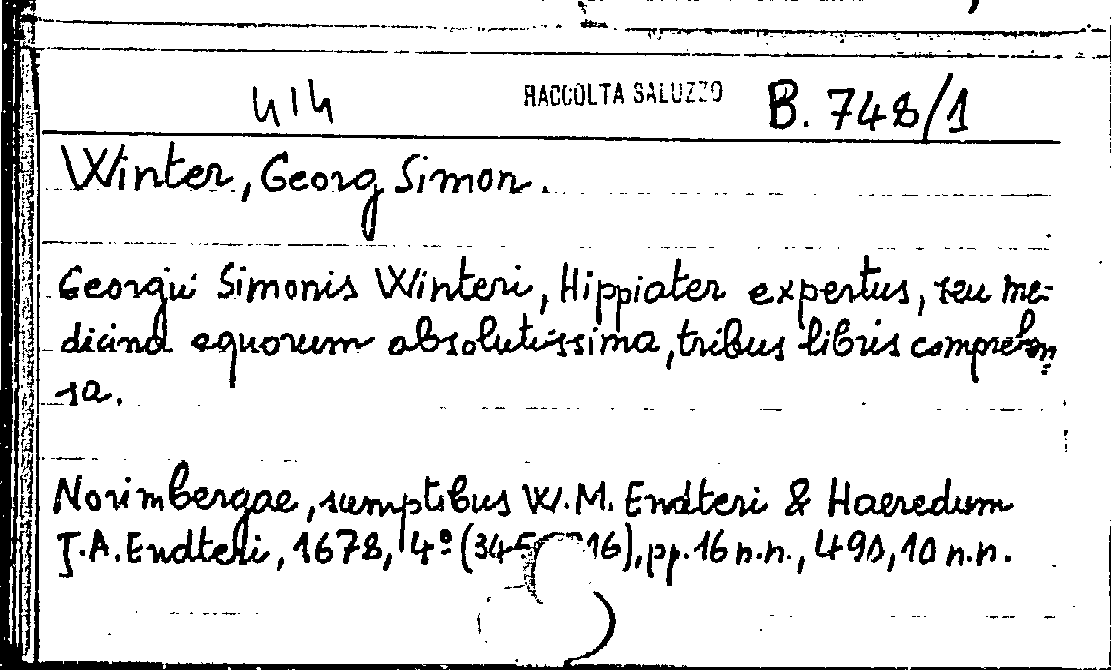 414 RACCOLTA SALUZZO B. 748/1
Winter, Georg Simon.
Georgii Simonis Winteri, Hippiater expertus, seu me-
dicina equorum absolutissima, tribus libris comprehen-
sa.
Norimbergae, sumptibus W.M. Endteri & Haeredum
J.A. Endteri, 1678, 4º pp. 16 n.n., 490, 10 n.n.